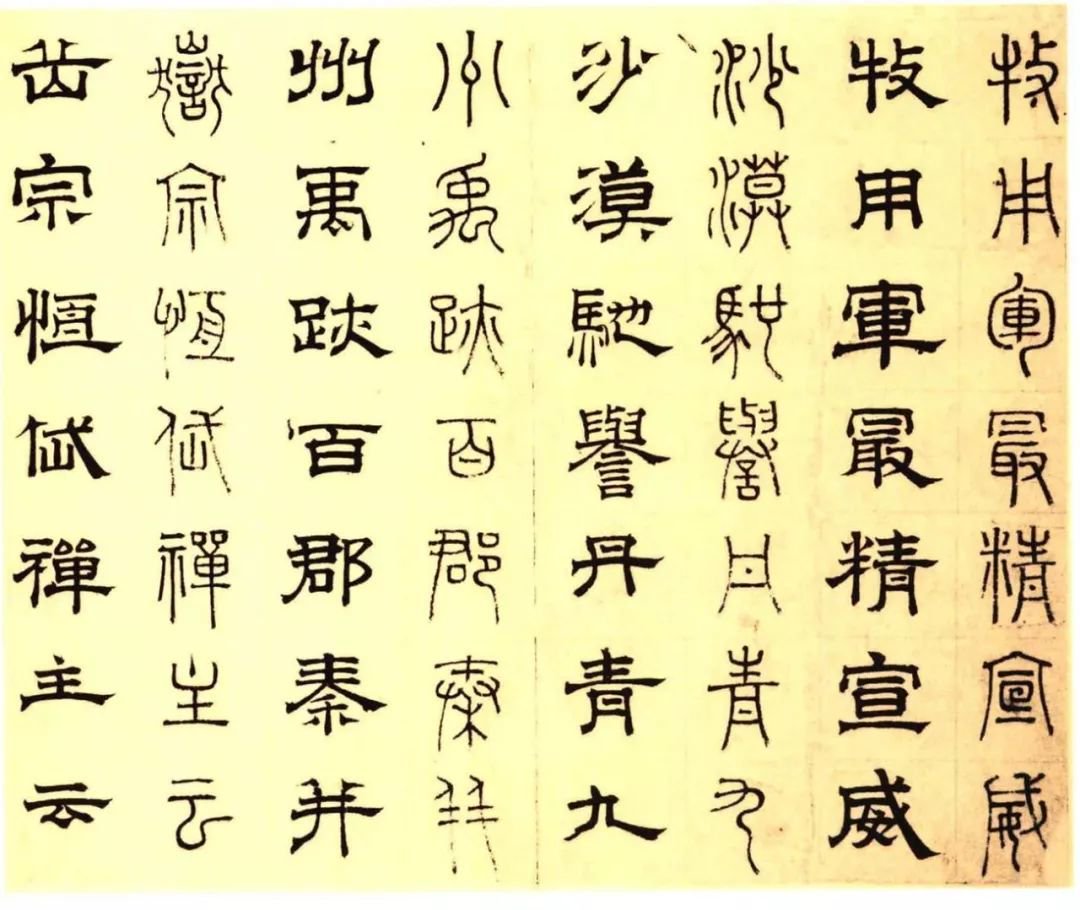 牧用軍最精宣威
牧用軍最精宣威
沙漠馳譽丹青九
沙漠馳譽丹青九
州禹跡百郡秦并
州禹跡百郡秦并
嶽宗恒岱禪主云
岳宗恒岱禪主云